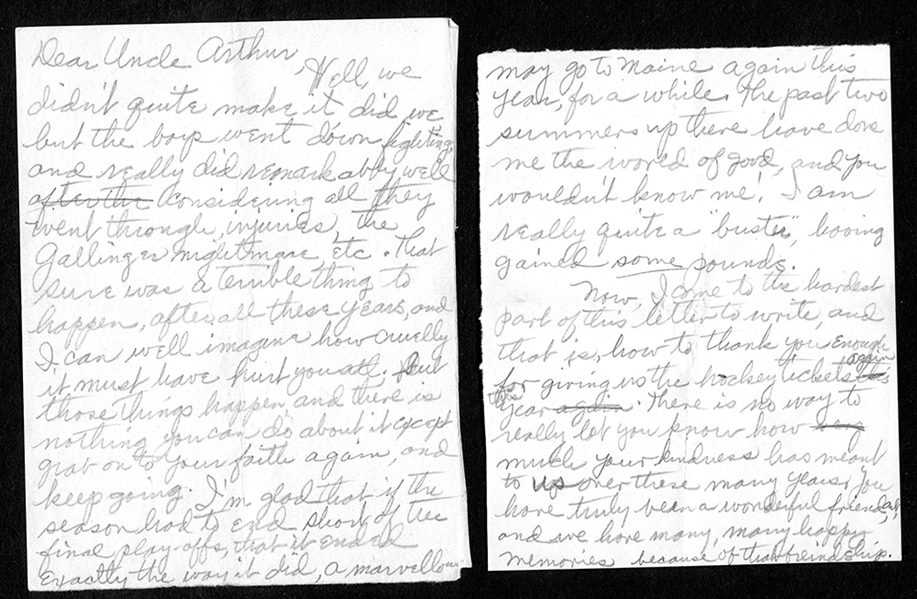 Dear Uncle Arthur,
Well, we
didn't quite make it did we
but the boys went down fighting,
and really did remarkabby well
after the considering all they
went through, injuries, the
Gallinger nightmare etc. That
sure was a terrible thing to
happen, after all these years, and
I can well imagine how cruelly
it must have hurt you all. But
those things happen and there is
nothing you can do about it except
grat on to your faith again, and
keep going. I'm glad that if the
season had to end short of the
final play-offs, that it ended
exactly the way it did, a marvellous
may go to Maine again this
year, for a while. The past two
summers up there have done
me the world of good, and you
wouldn't know me! I am
really quite a "buster", having
gained some pounds.
Now, I come to the hardest
part of this letter to write, and
that is, how to thank you enough
for giving us the hockey tickets again
this year again. There is no way to
really let you know how
much your kindness has meant
to us over these many years. You
have truly been a wonderful friend,
and we have many, many happy
memories because of that friendship.